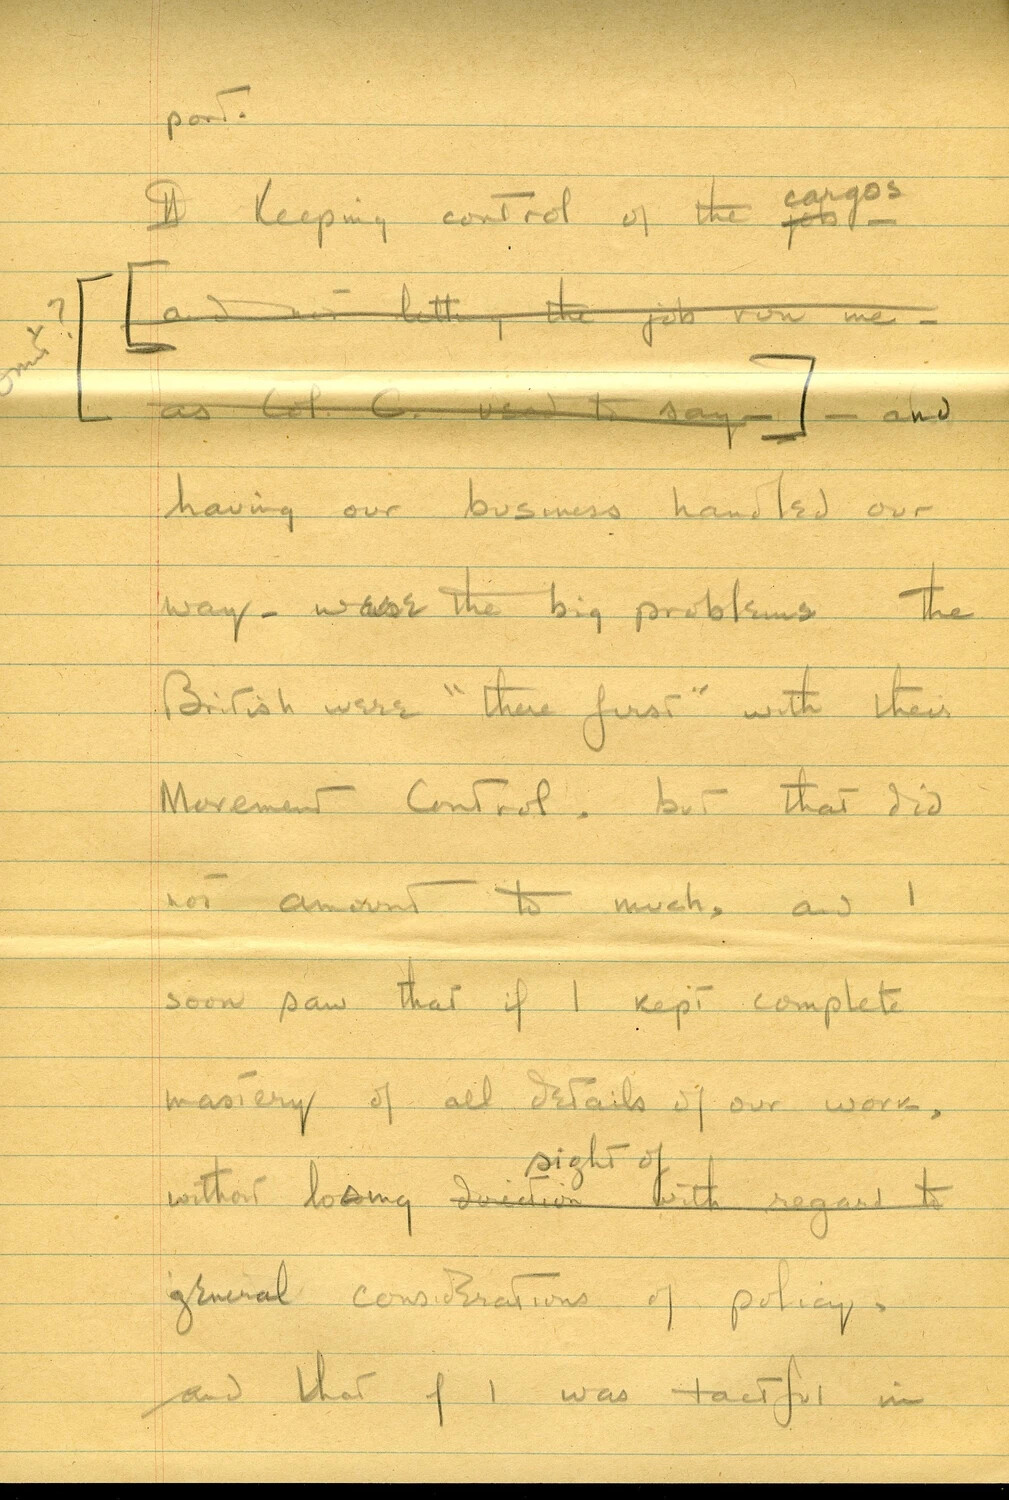 port.
¶ Keeping control of the cargos
job –
and not letting the job run me –
omit?
as Col. C. used to say – – and
having our business handled our
way – were the big problems the
British were "there first" with their
Movement Control. but that did
not amount to much, and I
soon saw that if I kept complete
mastery of all details of our work,
sight of
without losing direction with regard to
general considerations of policy,
and that if I was tactful in